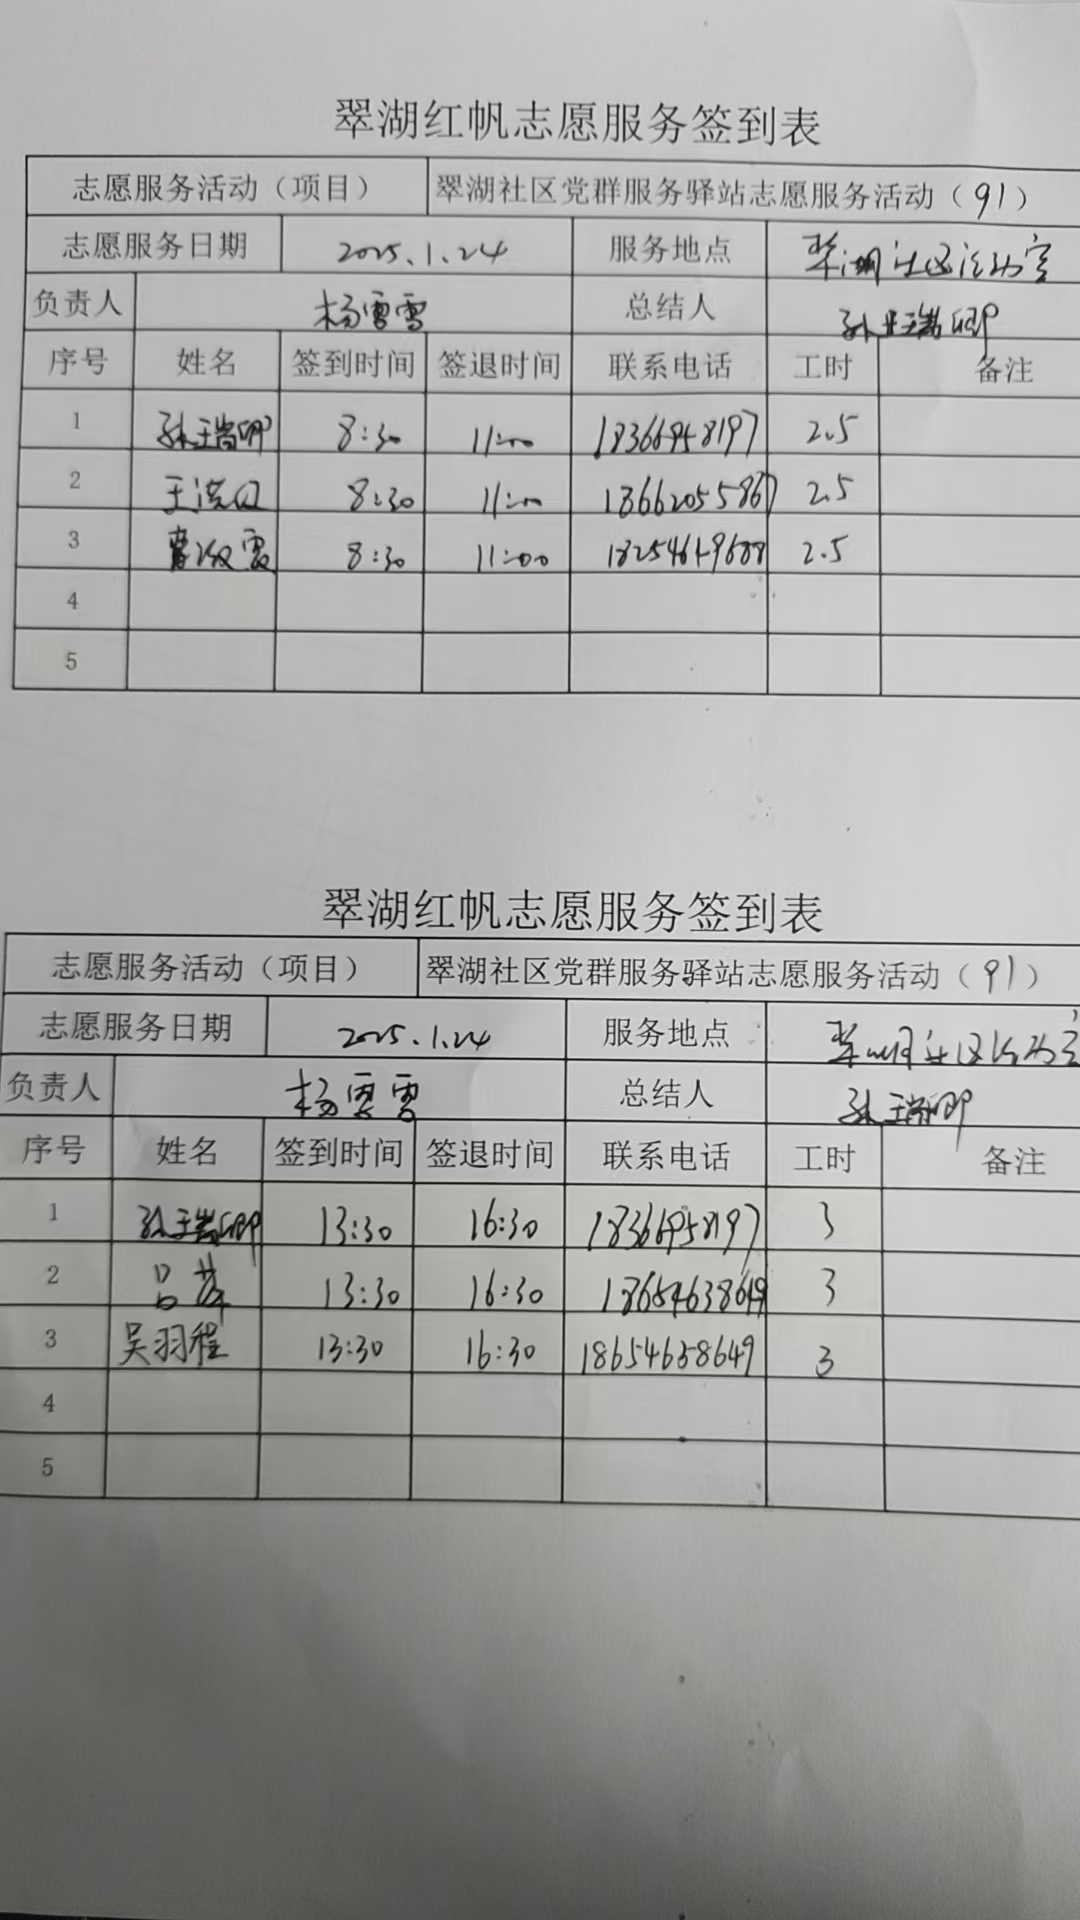 翠湖红帆志愿服务签到表
志愿服务活动（项目） 翠湖社区党群服务驿站志愿服务活动（91）
志愿服务日期 2025.1.24 服务地点 翠湖社区活动室
负责人 杨雪雪 总结人 孙瑞卿
序号 姓名 签到时间 签退时间 联系电话 工时 备注
1 孙瑞卿 8:30 11:00 18366958197 2.5
2 王 8:30 11:00 13662055867 2.5
3 8:30 11:00 2.5
4
5
翠湖红帆志愿服务签到表
志愿服务活动（项目） 翠湖社区党群服务驿站志愿服务活动（91）
志愿服务日期 2025.1.24 服务地点 翠湖社区活动室
负责人 杨雪雪 总结人 孙瑞卿
序号 姓名 签到时间 签退时间 联系电话 工时 备注
1 孙瑞卿 13:30 16:30 18366958197 3
2 吕 13:30 16:30 18654638649 3
3 吴羽程 13:30 16:30 18654638649 3
4
5